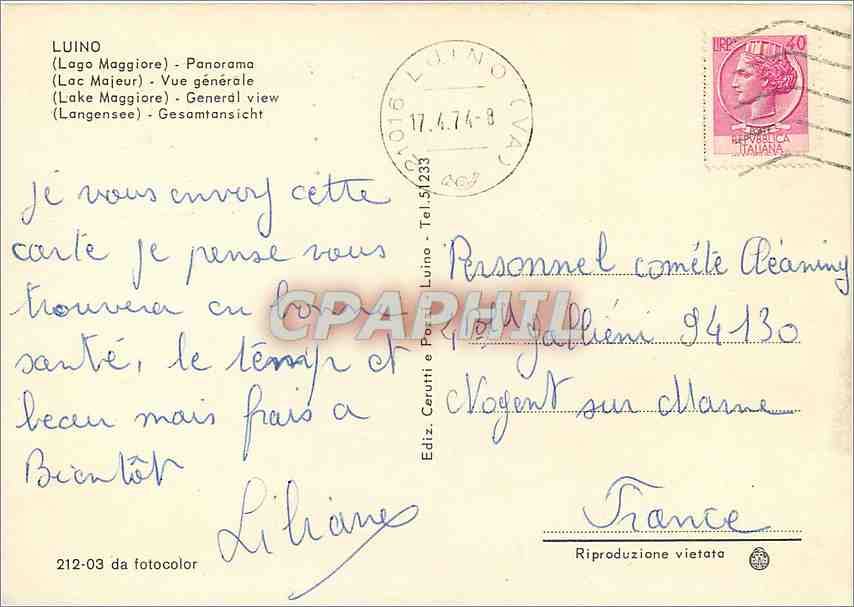 LUINO
(Lago Maggiore) - Panorama
(Lac Majeur) - Vue générale
(Lake Maggiore) - General view
(Langensee) - Gesamtansicht
21016 LUINO (VA)
17.4.74-8
LIRE 40
REPVBBLICA
ITALIANA
Je vous envoy cette
carte je pense vous
trouvera en bonne
santé, le temp et
beau mais frais a
Bientôt
Liliane
Ediz. Cerutti e Pozzi Luino - Tel. 51233
Personnel cométe Cléaning
Bld Galliéni 94130
Nogent sur Marne
France
CPAPHIL
212-03 da fotocolor
Riproduzione vietata